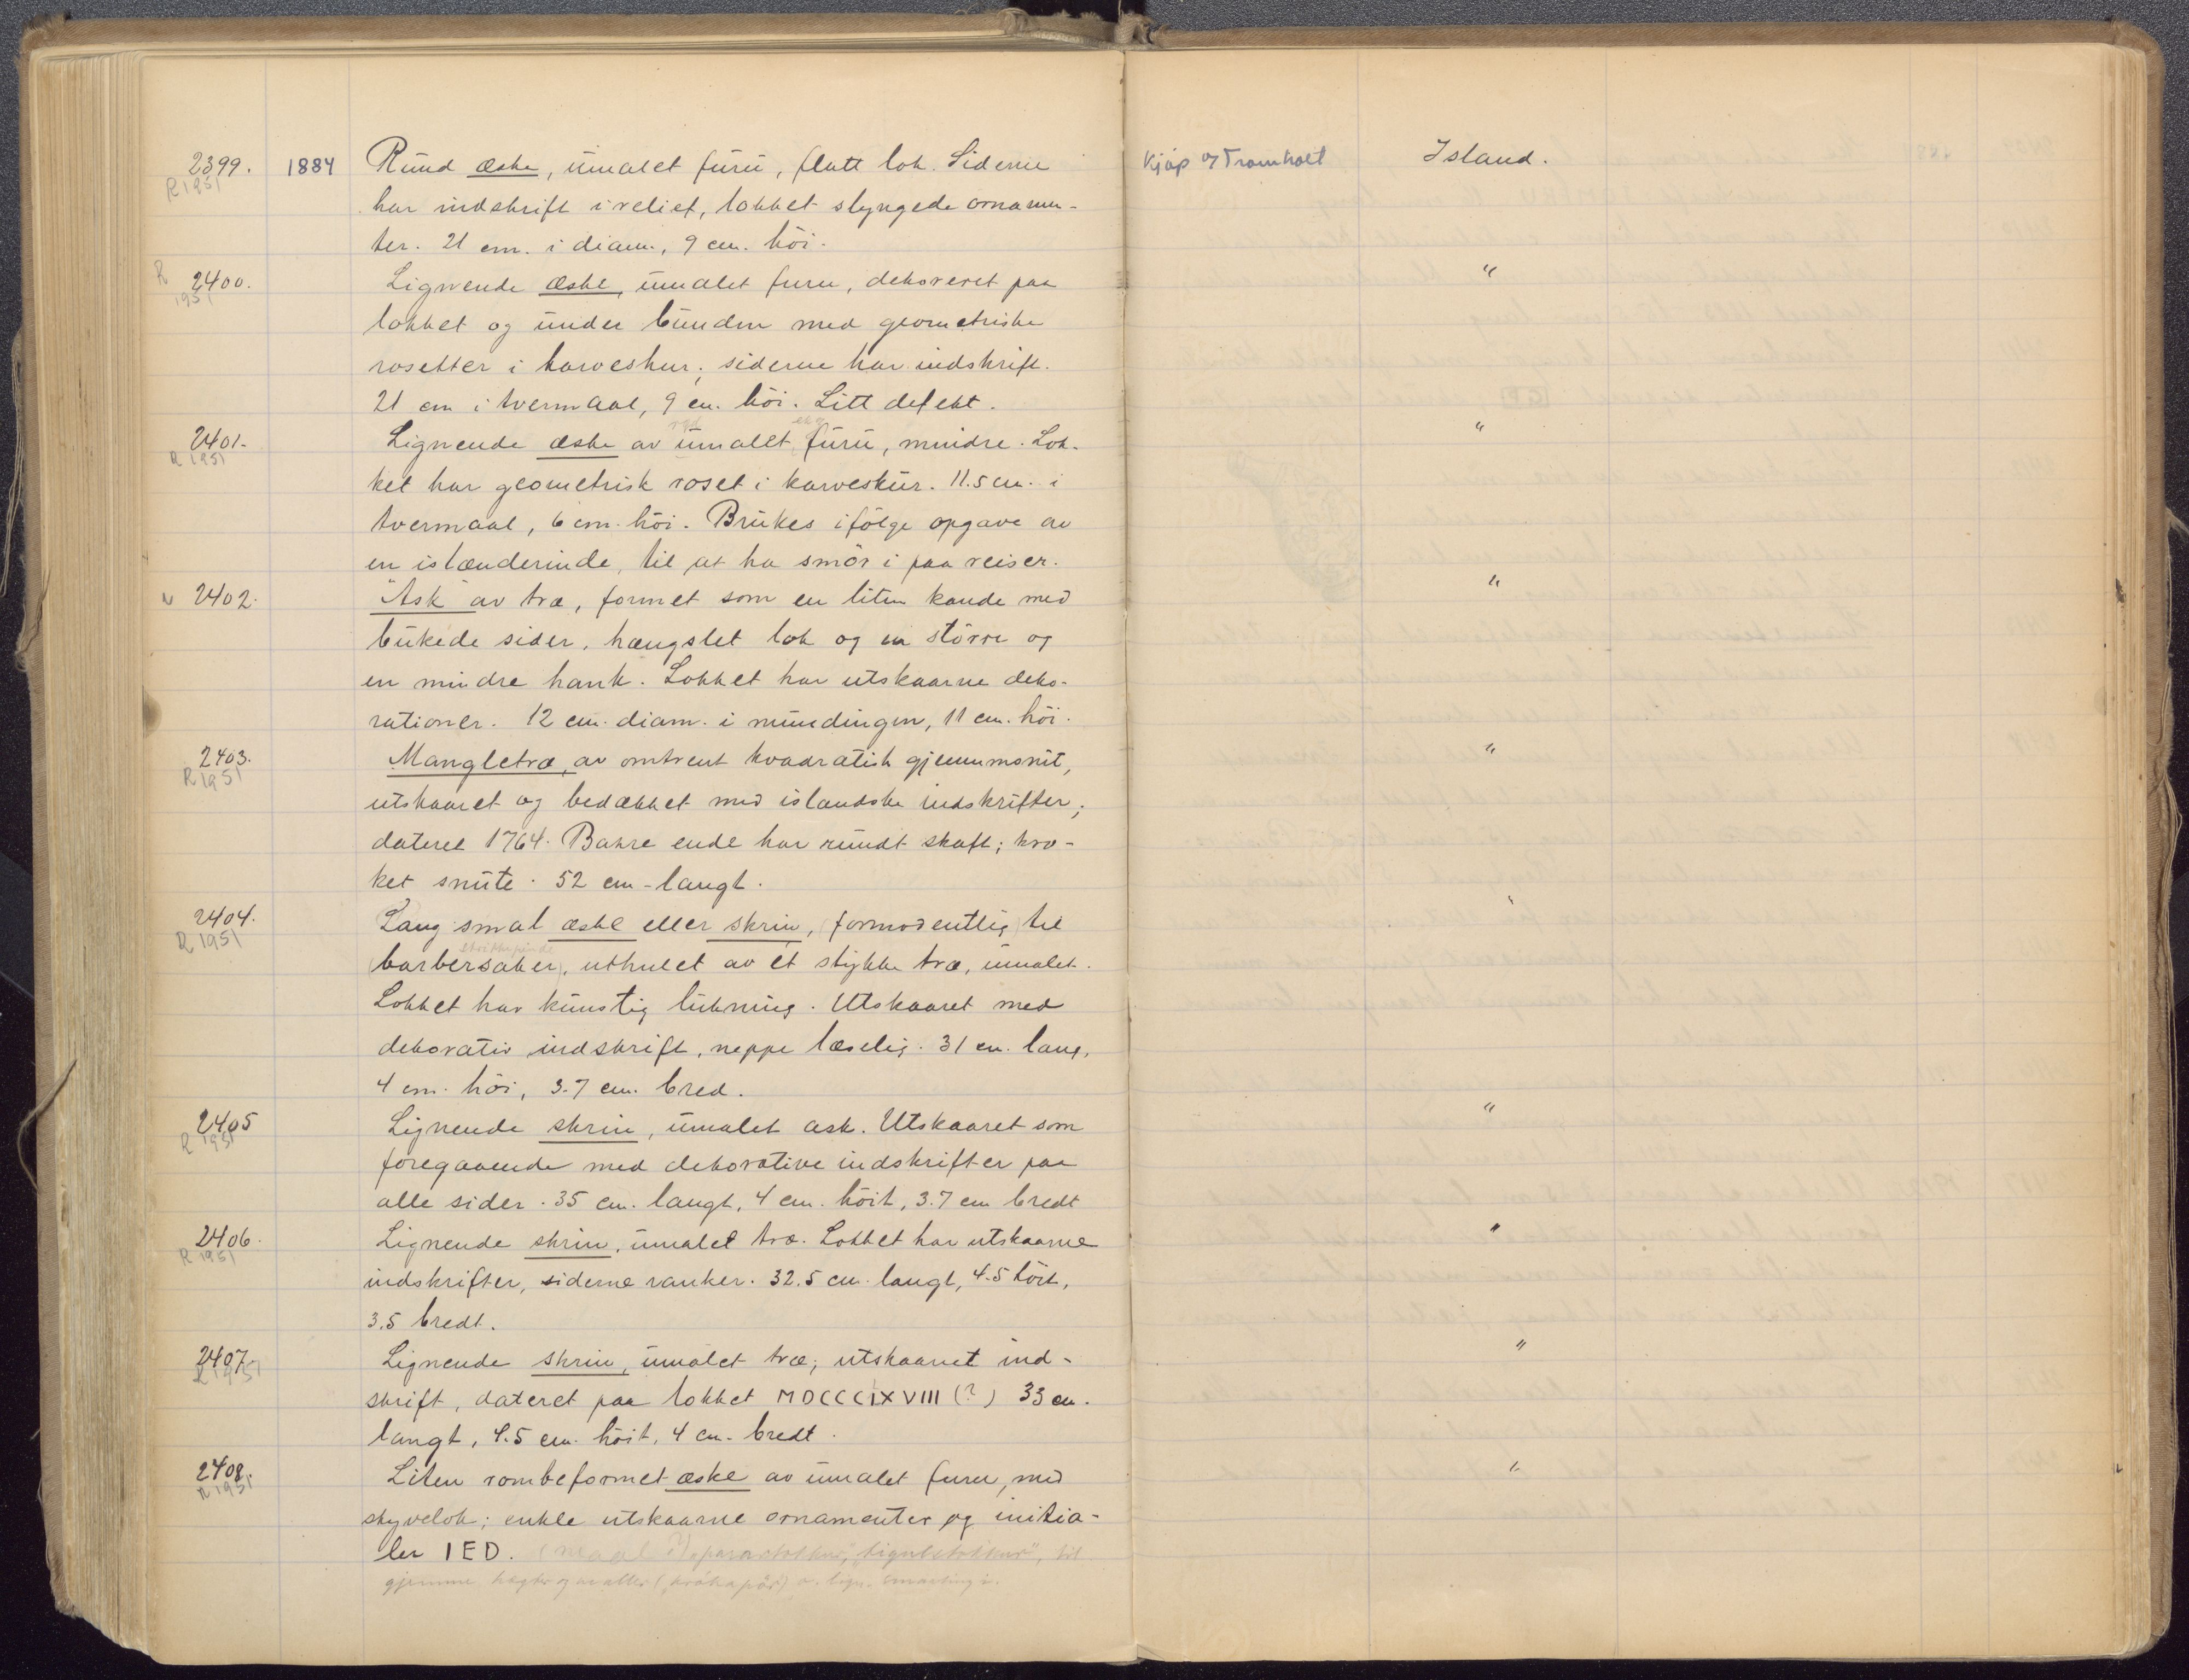 2399. 1884 Rund æske, umalet furu, flatt lok. Siderne Kjøp af Tromholt Island.
R 1951
har indskrift i relief, lokket slyngede ornamen-
ter. 21 cm. i diam., 9 cm. höi.
R 2400. Lignende æske, umalet furu, dekoreret paa "
1951
lokket og under bunden med geometriske
rosetter i karveskur; siderne har indskrift.
21 cm i tvermaal, 9 cm. höi. Litt defekt.
2401. Lignende æske av umalet furu, mindre. Lok- "
R 1951
ket har geometrisk roset i karveskur. 11.5 cm. i
tvermaal, 6 cm. höi. Brukes ifölge opgave av
en islænderinde, til at ha smör i paa reiser.
N 2402. "Ask" av træ, formet som en liten kande med "
bukede sider, hængslet lok og en större og
en mindre hank. Lokket har utskaarne deko-
rationer. 12 cm. diam. i mundingen, 11 cm. höi.
2403. Mangletræ, av omtrent kvadratisk gjennemsnit, "
R 1951
utskaaret og bedækket med islandske indskrifter;
dateret 1764. Bakre ende har rundt skaft; kro-
ket snute. 52 cm. langt.
2404. Lang smal æske eller skrin, formodentlig til "
R 1951
strikkepinde
(barbersaker), uthulet av ét stykke træ, umalet.
Lokket har kunstig lukning. Utskaaret med
dekorativ indskrift, neppe læselig. 31 cm. lang,
4 cm. höi, 3.7 cm. bred.
2405 Lignende skrin, umalet ask. Utskaaret som "
R 1951
foregaaende med dekorative indskrifter paa
alle sider. 35 cm. langt, 4 cm. höit, 3.7 cm bredt
2406. Lignende skrin, umalet træ. Lokket har utskaarne "
R 1951
indskrifter, siderne ranker. 32.5 cm. langt, 4.5 höit,
3.5 bredt.
2407. Lignende skrin, umalet træ; utskaaret ind- "
R 1951
skrift, dateret paa lokket MDCCCIXVIII (?) 33 cm.
langt, 4.5 cm. höit, 4 cm. bredt.
2408. Liten rombeformet æske av umalet furu, med "
R 1951
skyvelok; enkle utskaarne ornamenter og initia-
ler IED. til
gjemme hægter og o. lign. i.